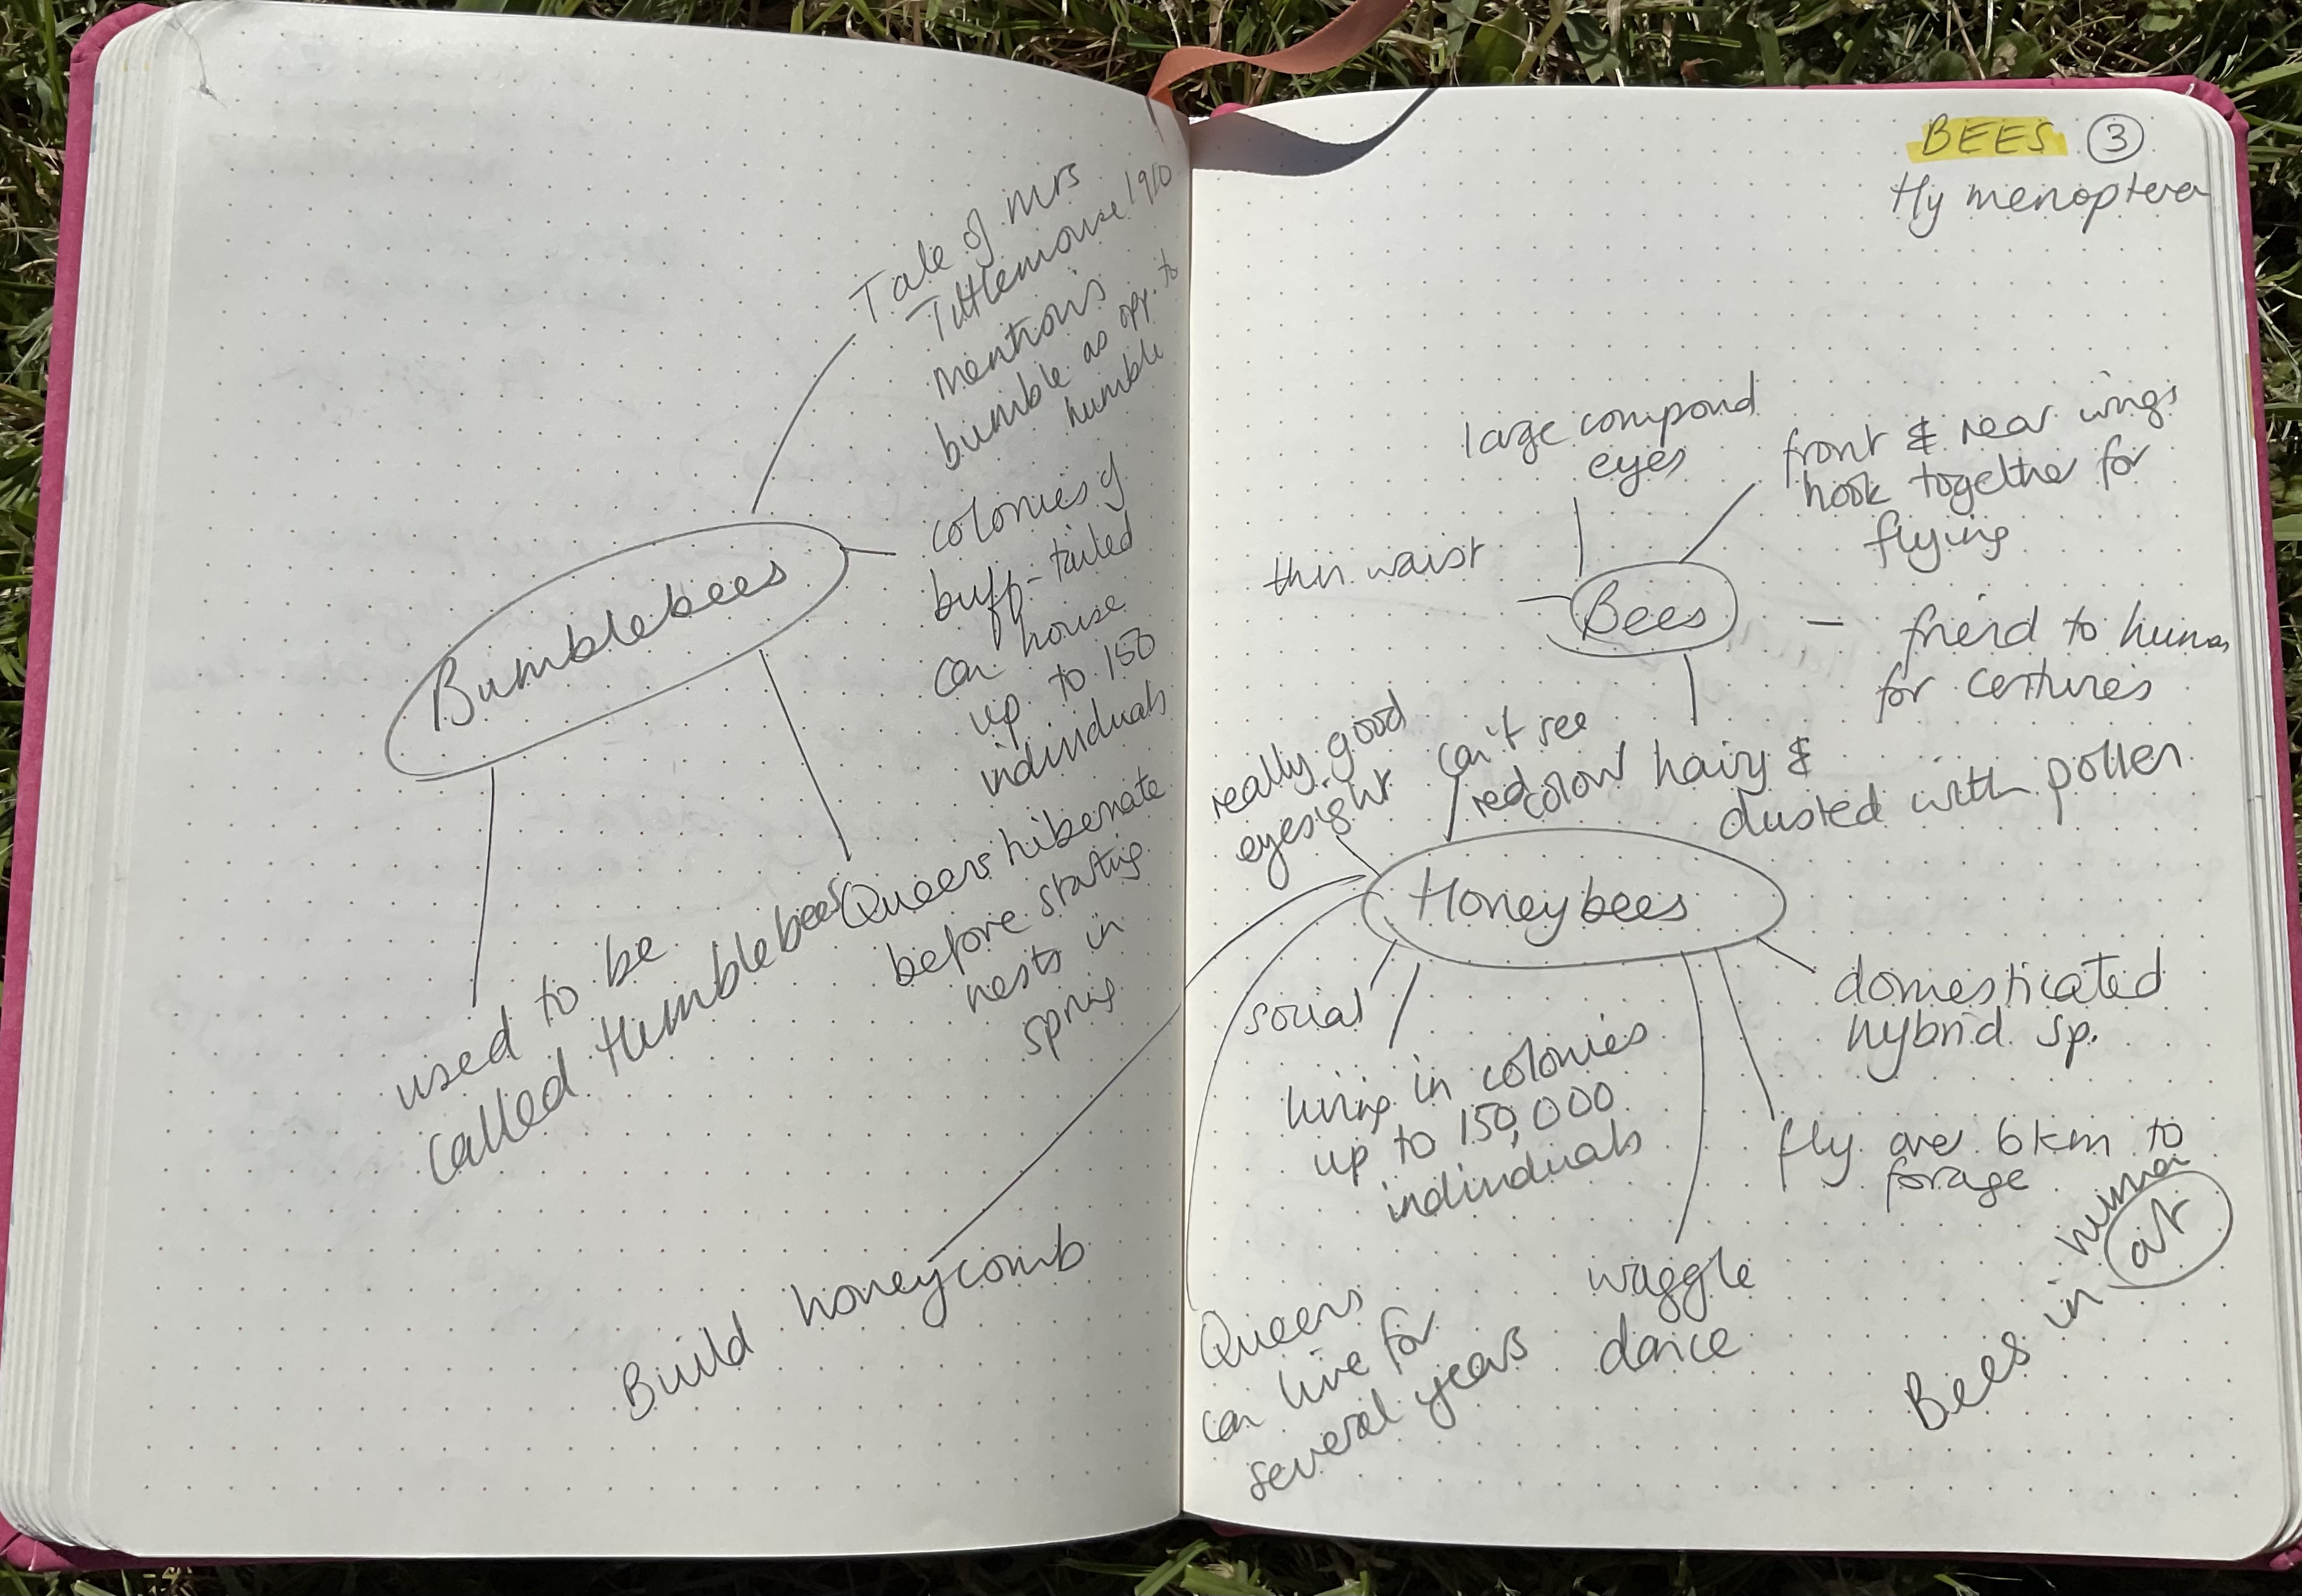 Tale of Mrs
Tittlemouse 1910
mentions
bumble as opp. to
humble
Bumblebees
colonies of
buff-tailed
can house
up to 150
individuals
Queens hibernate
before starting
nests in
spring
used to be
called Humblebees
Build honeycomb
BEES 3
Hymenoptera
large compond
eyes
front & rear wings
hook together for
flying
thin waist
Bees
– friend to human
for centuries
hairy &
dusted with pollen
really good
eyesight
can't see
red colour
Honeybees
social
living in colonies
up to 150,000
individuals
domesticated
hybrid sp.
fly over 6km to
forage
waggle
dance
Queens
can live for
several years
Bees in human
art